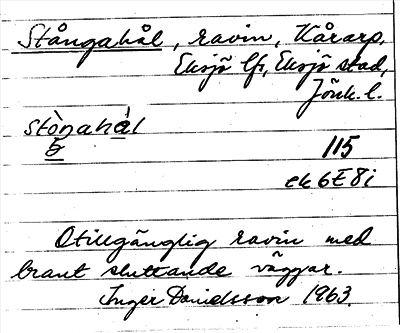 Stångahål, ravin, Kårarp,
Eksjö lfs, Eksjö stad,
Jönk. l.
stòŋahál
115
ek 6E8i
Otillgänglig ravin med
brant sluttande väggar.
Inger Danielsson 1963.